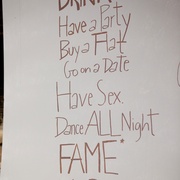 DRINK
Have a Party
Buy a Flat
Go on a Date
Have Sex.
Dance ALL Night
FAME*